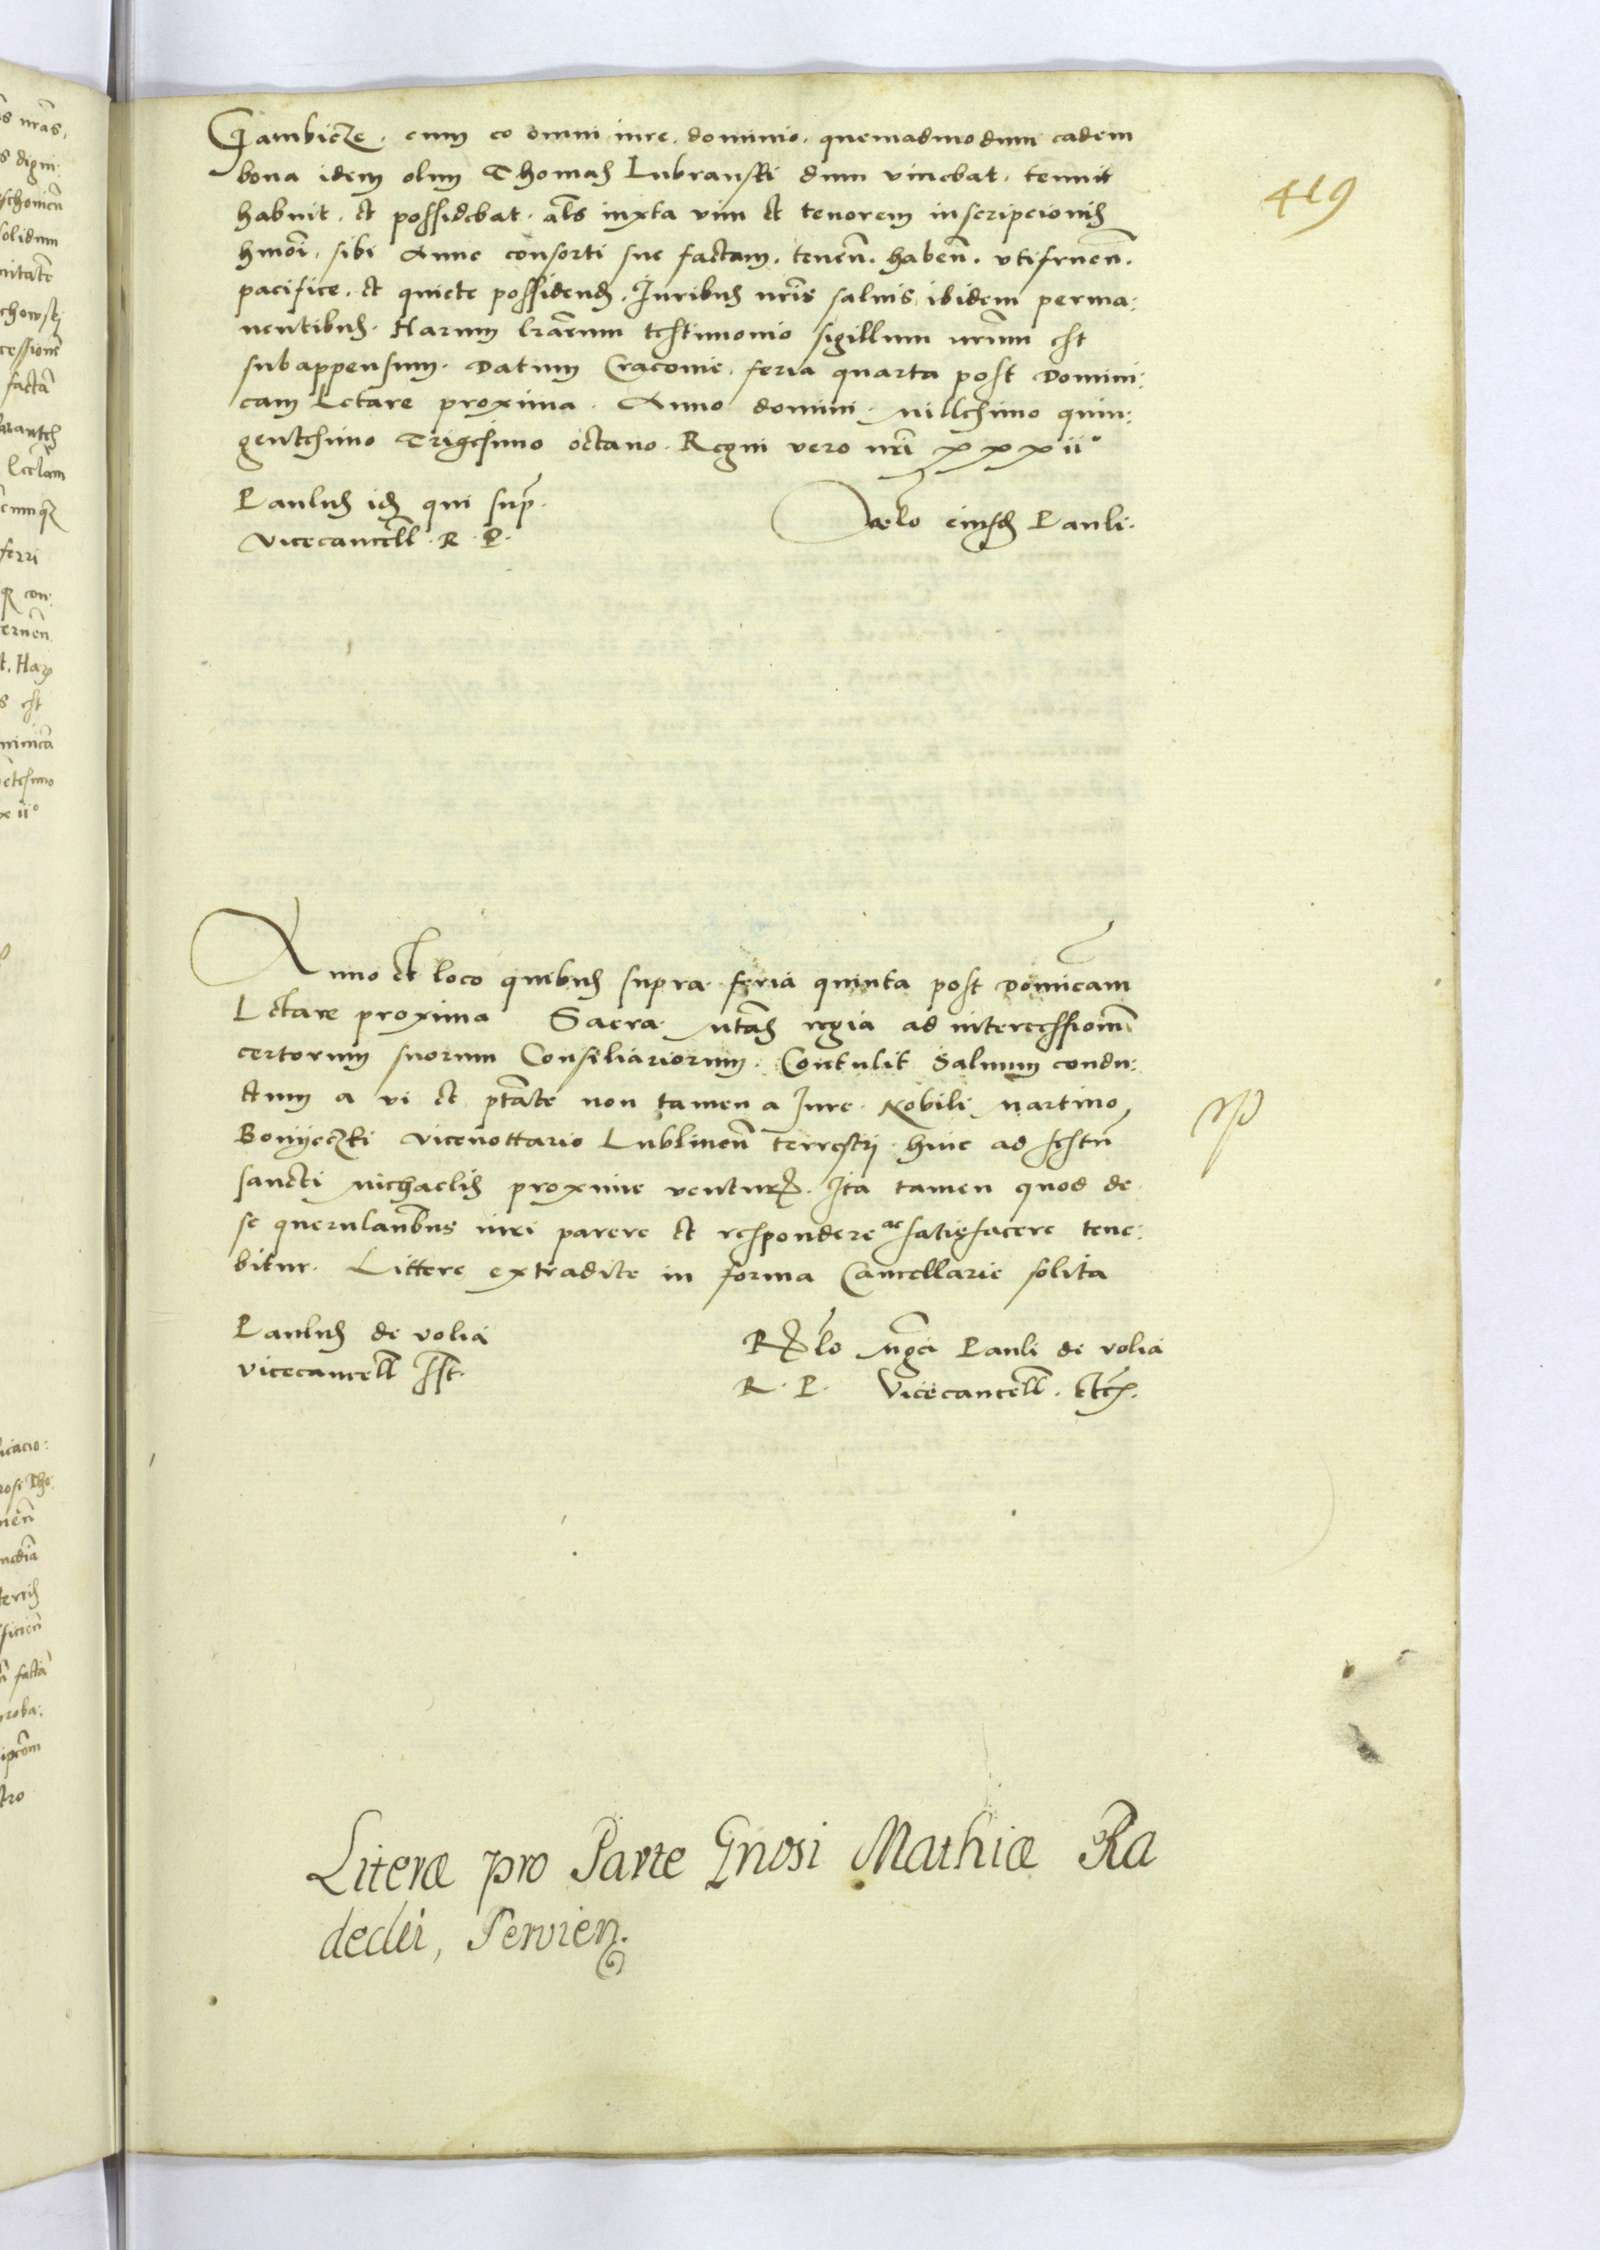 419
Gambicze. cum eo omni iure. dominio. quemadmodum eadem
bona idem olim Thomas Lubranski dum vivebat. tenuit
habuit. et possidebat. als iuxta vim et tenorem inscripcionis
hmoi. sibi Anne consorti sue factam. tenen. haben. utifruen.
pacifice. et quiete possidend. Iuribus nris salvis ibidem perma:
nentibus. Harum lrarum testimonio sigillum nrum est
subappensum. Datum Cracovie. feria quarta post Domini:
cam Letare proxima. Anno domini. Millesimo quin:
gentesimo Trigesimo octavo. Regni vero nri xxxii°
Paulus id qui sup.
Vicecancell. R. P.
Relo eiusd Pauli.
Anno et loco quibus supra feria quinta post Dominicam
Letare proxima Sacra Mtas regia ad intercessionem
certorum suorum Consiliariorum. Contulit Salvum condu:
ctum a vi et ptate non tamen a Iure. Nobili Martino
vicenottario Lublinen terrestri hinc ad festum
sancti Michaelis proxime ventur. Ita tamen quod de
se querulantibus iuri parere et respondere ac satisfacere tene:
bitur. Littere extradite in forma Cancellarie solita
Paulus de volia
vicecancell sst.
Relo Mgci Pauli de volia
R. P. Vicecancell. etc.
Literæ pro Parte Gnosi Mathiæ Ra
decki, Servien.